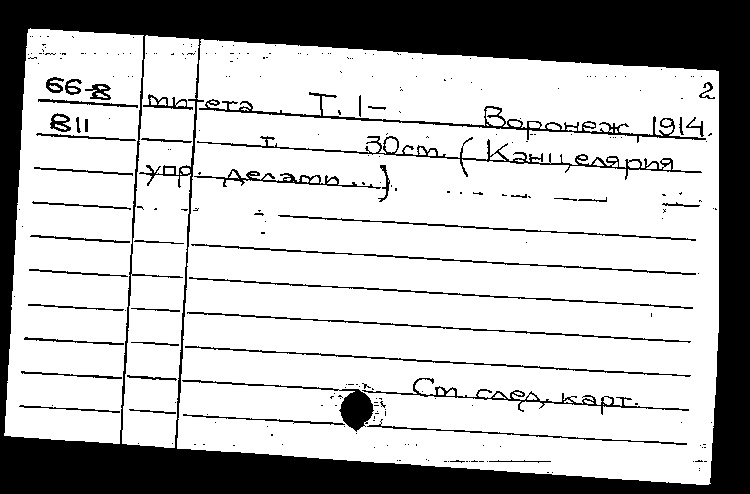 2
66-8 митета. Т. I- Воронеж, 1914.
В11 т. 30см. (Канцелярия
упр. делами...).
См. след. карт.